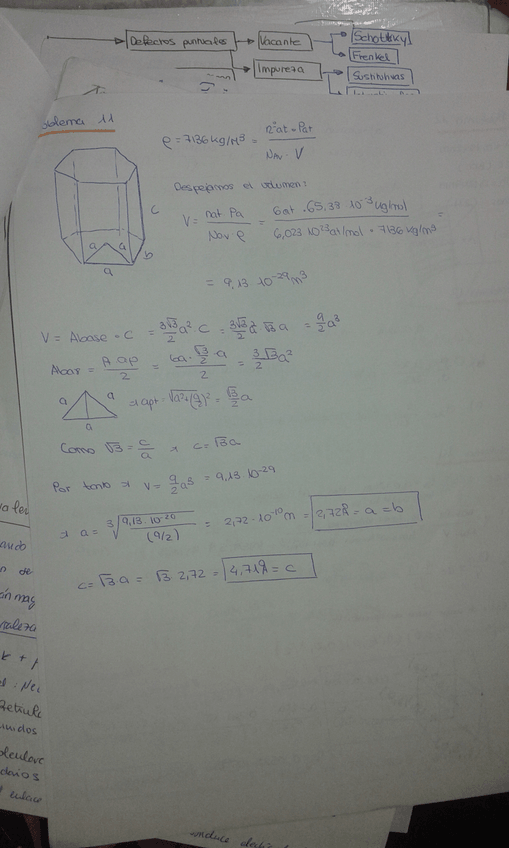 Defectos puntuales
Vacante
Schottky
Frenkel
Impureza
Sustitutivas
Problema 11
ρ = 7136 kg/m³ = nºat · Pat / NAV · V
c
a a b
a
Despejamos el volumen:
V = nat Pa / Nav · ρ = 6at · 65,39 · 10⁻³ kg/mol / 6,023 10²³ at/mol · 7136 kg/m³ =
= 9,13 10⁻²⁹ m³
V = Abase · c = 3√3/2 a² c = 3√3/2 a² √3 a = 9/2 a³
Abase = P · ap / 2 = 6a · √3/2 · a / 2 = 3√3/2 a²
a a
a
⇒ apt = √a²+(a/2)² = √3/2 a
Como √3 = c/a ⇒ c = √3 a
Por tanto ⇒ V = 9/2 a³ = 9,13 · 10⁻²⁹
⇒ a = ³√9,13 · 10⁻²⁹ / (9/2) = 2,72 · 10⁻¹⁰ m = 2,72Å = a = b
c = √3 a = √3 · 2,72 = 4,71Å = c